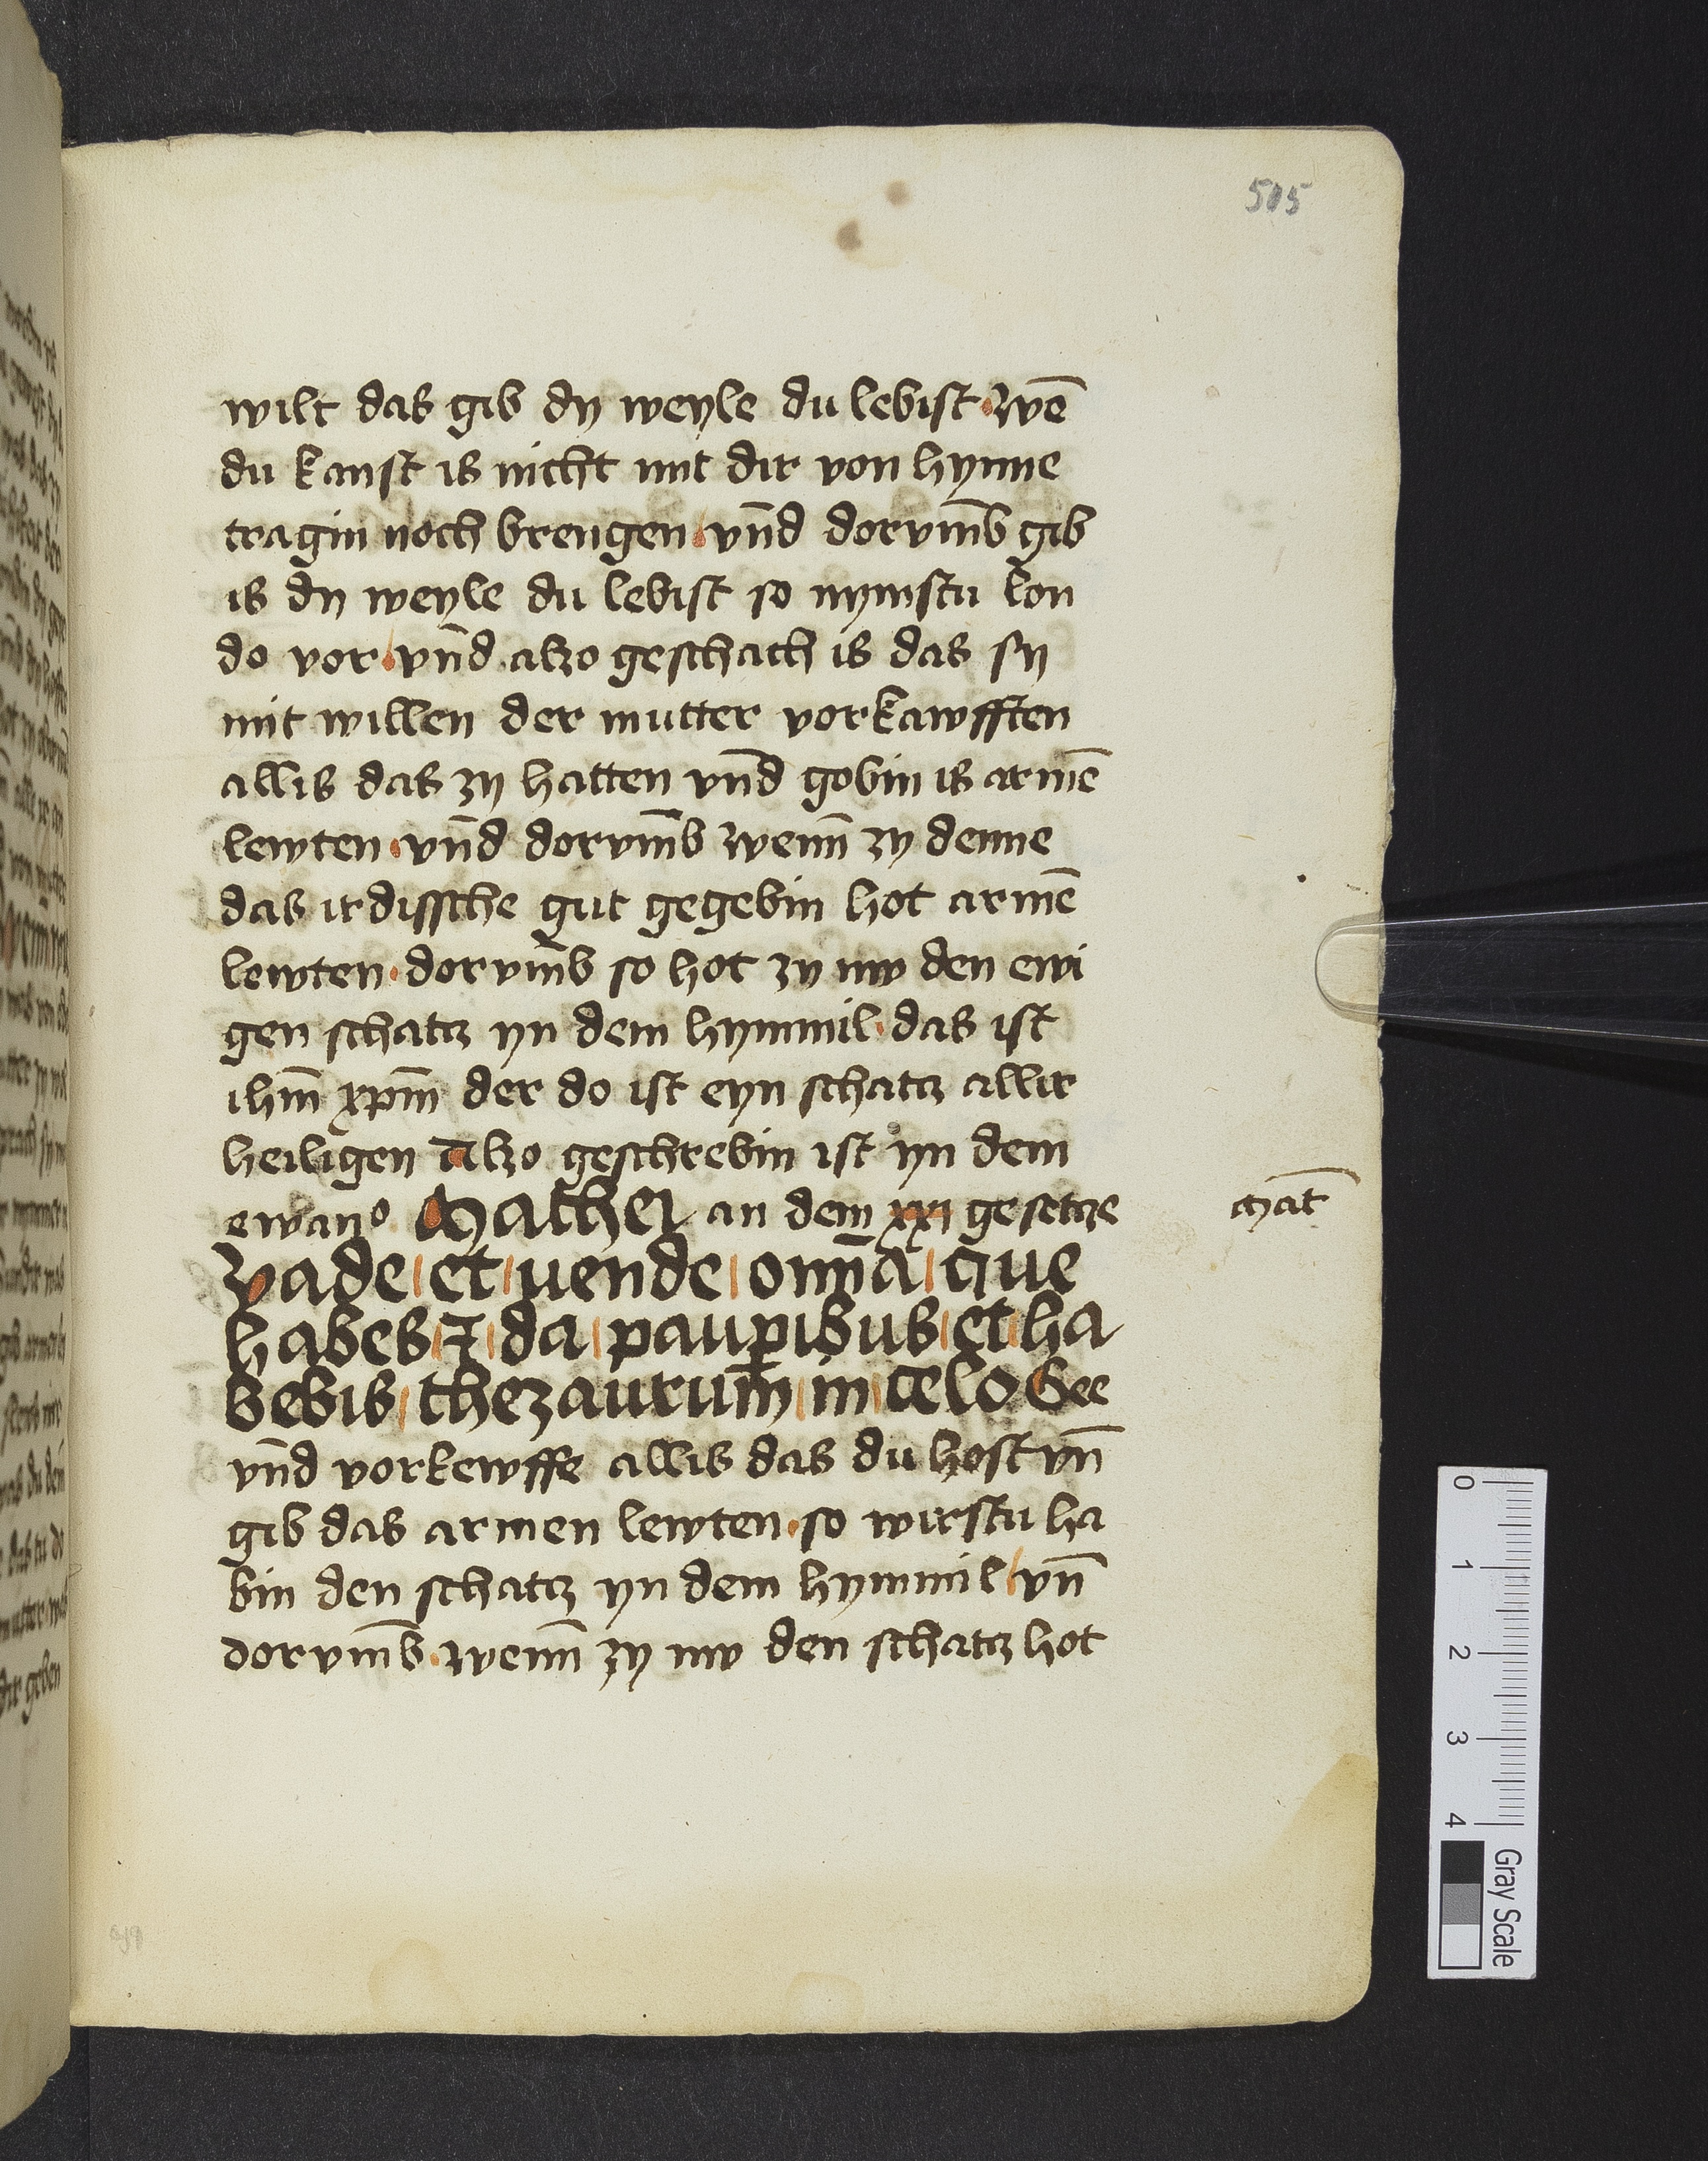 505
wilt das gib dy weyle du lebist · wē
du kanst is nicht mit dir von hynne
tragin noch brengen vn̄d dorvm̄b gib
is dy weyle du lebist so nymstu lon
do vor vn̄d alzo geschach is das sy
mit willen der mutter vorkawfften
allis das zy hatten vn̄d gobin is armē
lewten · vn̄d dorvm̄b wenn̄ zy denne
das irdissche gut gegebin hot armē
lewten · dorvm̄b so hot zy nw den ewi
gen schatcz yn dem hymmil · das ist
ihm̄ xpm̄ der do ist eyn schatcz allir
heiligen alzo geschrebin ist yn dem
ewanᵒ Mathei an dem xxi gesetcze
Mat̄
Vade et uende omn̄a que
habes ⁊ da paup̲ibus et ha
bebis thezaurum̄ in celo Gee
vn̄d vorkewffe allis das du host vn̄
gib das armen lewten · so wirstu ha
bin den schatcz yn dem hymmil vn̄
dorvm̄b · wenn̄ zy nw den schatcz hot
0 1 2 3 4
Gray Scale